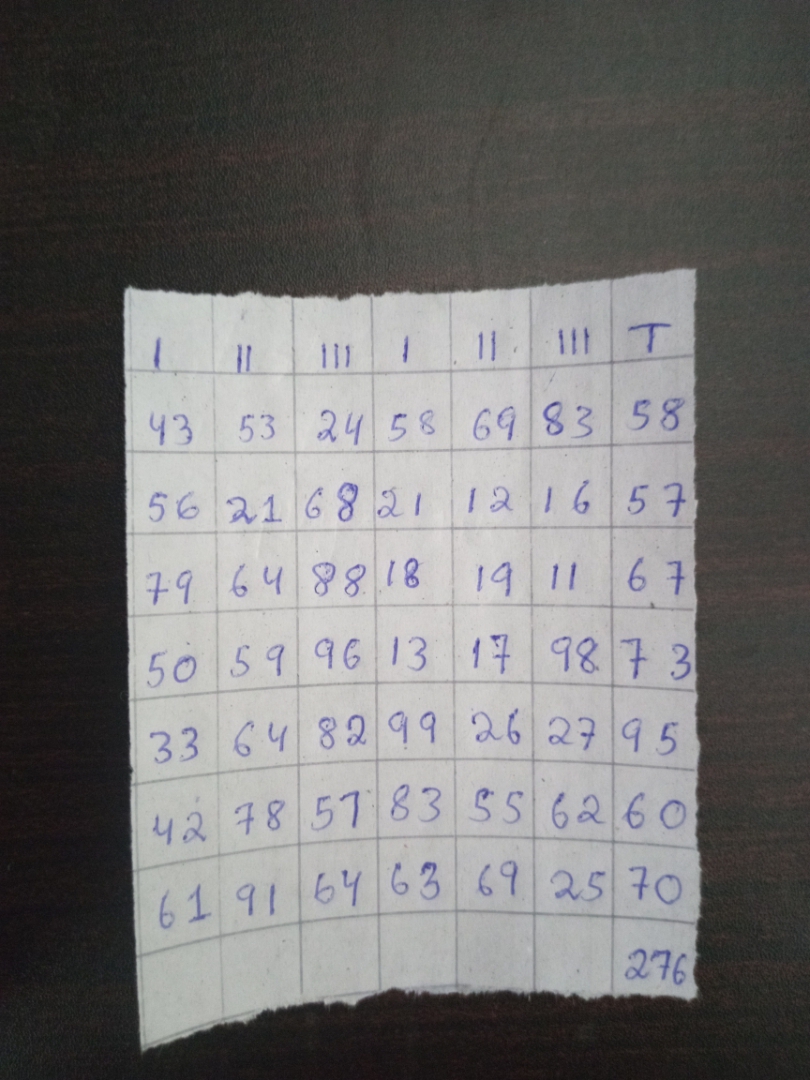 I II III I II III T
43 53 24 58 69 83 58
56 21 68 21 12 16 57
79 64 88 18 19 11 67
50 59 96 13 17 98 73
33 64 82 99 26 27 95
42 78 57 83 55 62 60
61 91 64 63 69 25 70
276